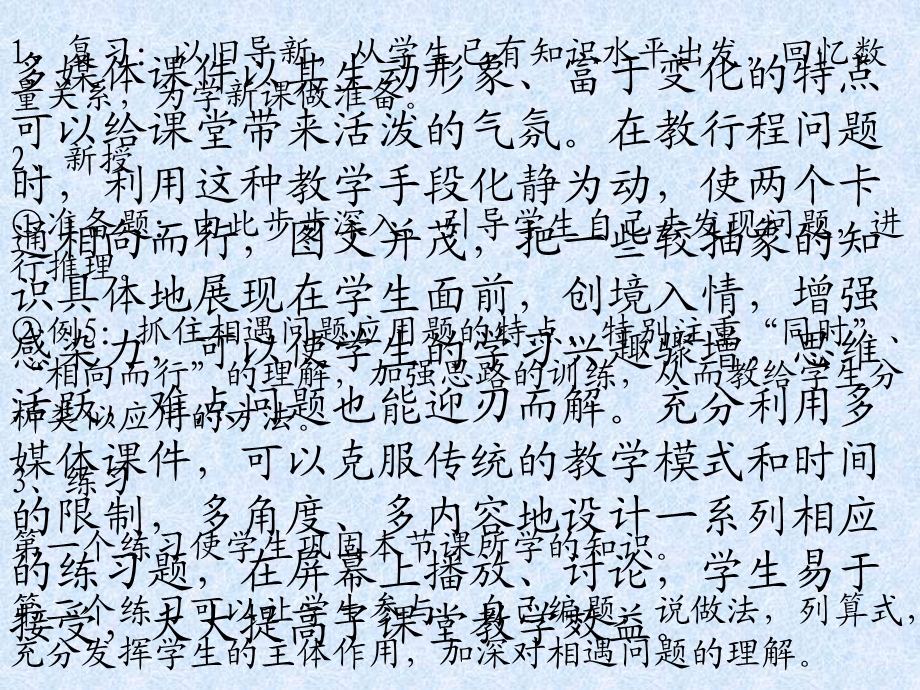 1、 复习：以旧导新，从学生已有知识水平出发，回忆数
量关系，为学新课做准备。
2、 新授
①准备题：由此步步深入，引导学生自己去发现问题，进
行推理。
②例5：抓住相遇问题应用题的特点，特别注重“同时”、
“相向而行”的理解，加强思路的训练，从而教给学生分
析类似应用的方法。
3、练习
第一个练习使学生巩固本节课所学的知识。
第二个练习可以让学生参与，自己编题，说做法，列算式，
充分发挥学生的主体作用，加深对相遇问题的理解。
多媒体课件以其生动形象、富于变化的特点
可以给课堂带来活泼的气氛。在教行程问题
时，利用这种教学手段化静为动，使两个卡
通相向而行，图文并茂，把一些较抽象的知
识具体地展现在学生面前，创境入情，增强
感染力，可以使学生的学习兴趣骤增，思维
活跃，难点问题也能迎刃而解。充分利用多
媒体课件，可以克服传统的教学模式和时间
的限制，多角度、多内容地设计一系列相应
的练习题，在屏幕上播放、讨论，学生易于
接受，大大提高了课堂教学效益。